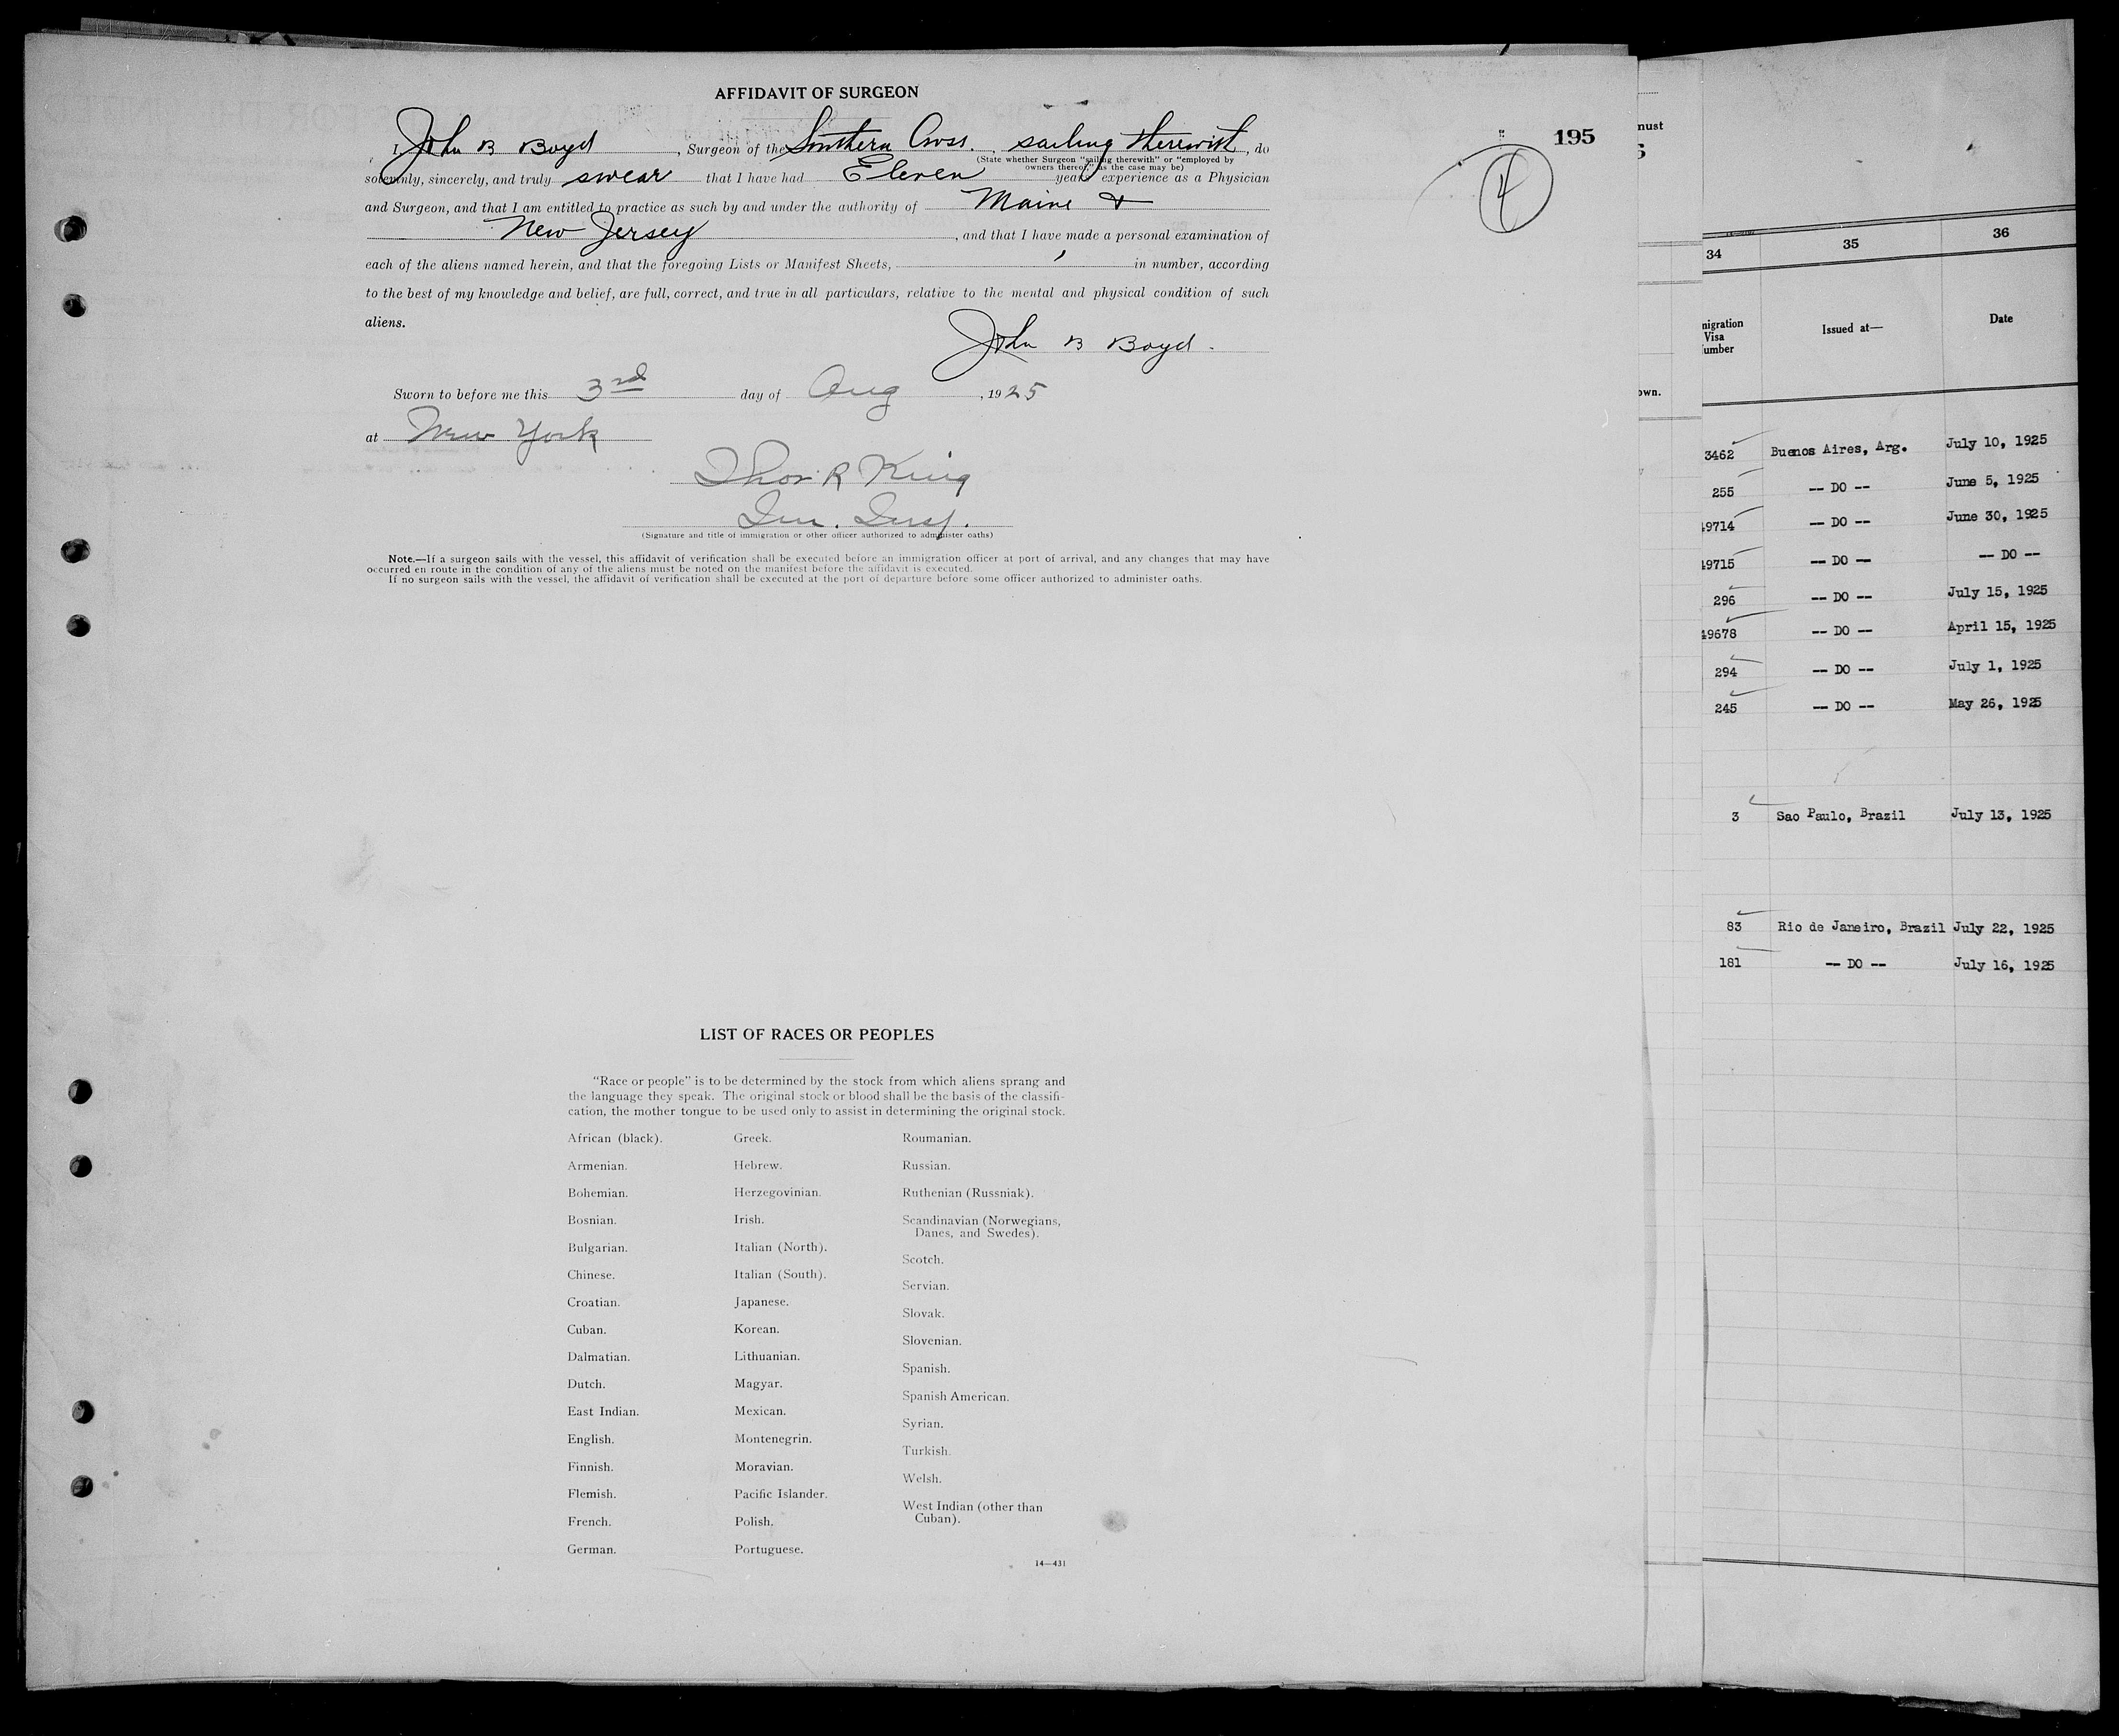 AFFIDAVIT OF SURGEON
195
I, John B Boyd, Surgeon of the Southern Cross, sailing therewith, do
(State whether Surgeon "sailing therewith" or "employed by
owners thereof," as the case may be)
solemnly, sincerely, and truly swear that I have had Eleven years experience as a Physician
and Surgeon, and that I am entitled to practice as such by and under the authority of Maine &
New Jersey, and that I have made a personal examination of
each of the aliens named herein, and that the foregoing Lists or Manifest Sheets, in number, according
to the best of my knowledge and belief, are full, correct, and true in all particulars, relative to the mental and physical condition of such
aliens.
John B Boyd.
Sworn to before me this 3rd day of Aug, 1925
at New York
Thos R King
Im. Insp.
(Signature and title of immigration or other officer authorized to administer oaths)
Note.—If a surgeon sails with the vessel, this affidavit of verification shall be executed before an immigration officer at port of arrival, and any changes that may have
occurred en route in the condition of any of the aliens must be noted on the manifest before the affidavit is executed.
If no surgeon sails with the vessel, the affidavit of verification shall be executed at the port of departure before some officer authorized to administer oaths.
LIST OF RACES OR PEOPLES
"Race or people" is to be determined by the stock from which aliens sprang and
the language they speak. The original stock or blood shall be the basis of the classifi-
cation, the mother tongue to be used only to assist in determining the original stock.
African (black).
Armenian.
Bohemian.
Bosnian.
Bulgarian.
Chinese.
Croatian.
Cuban.
Dalmatian.
Dutch.
East Indian.
English.
Finnish.
Flemish.
French.
German.
Greek.
Hebrew.
Herzegovinian.
Irish.
Italian (North).
Italian (South).
Japanese.
Korean.
Lithuanian.
Magyar.
Mexican.
Montenegrin.
Moravian.
Pacific Islander.
Polish.
Portuguese.
Roumanian.
Russian.
Ruthenian (Russniak).
Scandinavian (Norwegians,
Danes, and Swedes).
Scotch.
Servian.
Slovak.
Slovenian.
Spanish.
Spanish American.
Syrian.
Turkish.
Welsh.
West Indian (other than
Cuban).
14—431
must
own.
34 35 36
migration
Visa
umber
Issued at—
Date
3462 Buenos Aires, Arg. July 10, 1925
255 -- DO -- June 5, 1925
49714 -- DO -- June 30, 1925
49715 -- DO -- -- DO --
296 -- DO -- July 15, 1925
49678 -- DO -- April 15, 1925
294 -- DO -- July 1, 1925
245 -- DO -- May 26, 1925
3 Sao Paulo, Brazil July 13, 1925
83 Rio de Janeiro, Brazil July 22, 1925
181 -- DO -- July 16, 1925